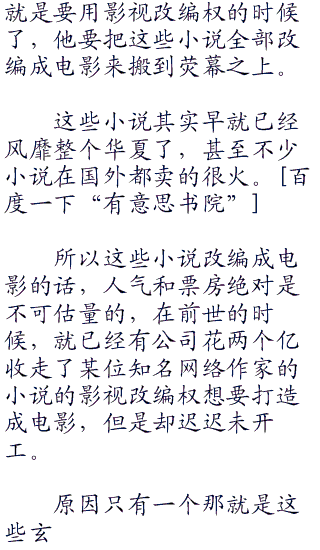 就是要用影视改编权的时候
了，他要把这些小说全部改
编成电影来搬到荧幕之上。
这些小说其实早就已经
风靡整个华夏了，甚至不少
小说在国外都卖的很火。[百
度一下“有意思书院”]
所以这些小说改编成电
影的话，人气和票房绝对是
不可估量的，在前世的时
候，就已经有公司花两个亿
收走了某位知名网络作家的
小说的影视改编权想要打造
成电影，但是却迟迟未开
工。
原因只有一个那就是这
些玄